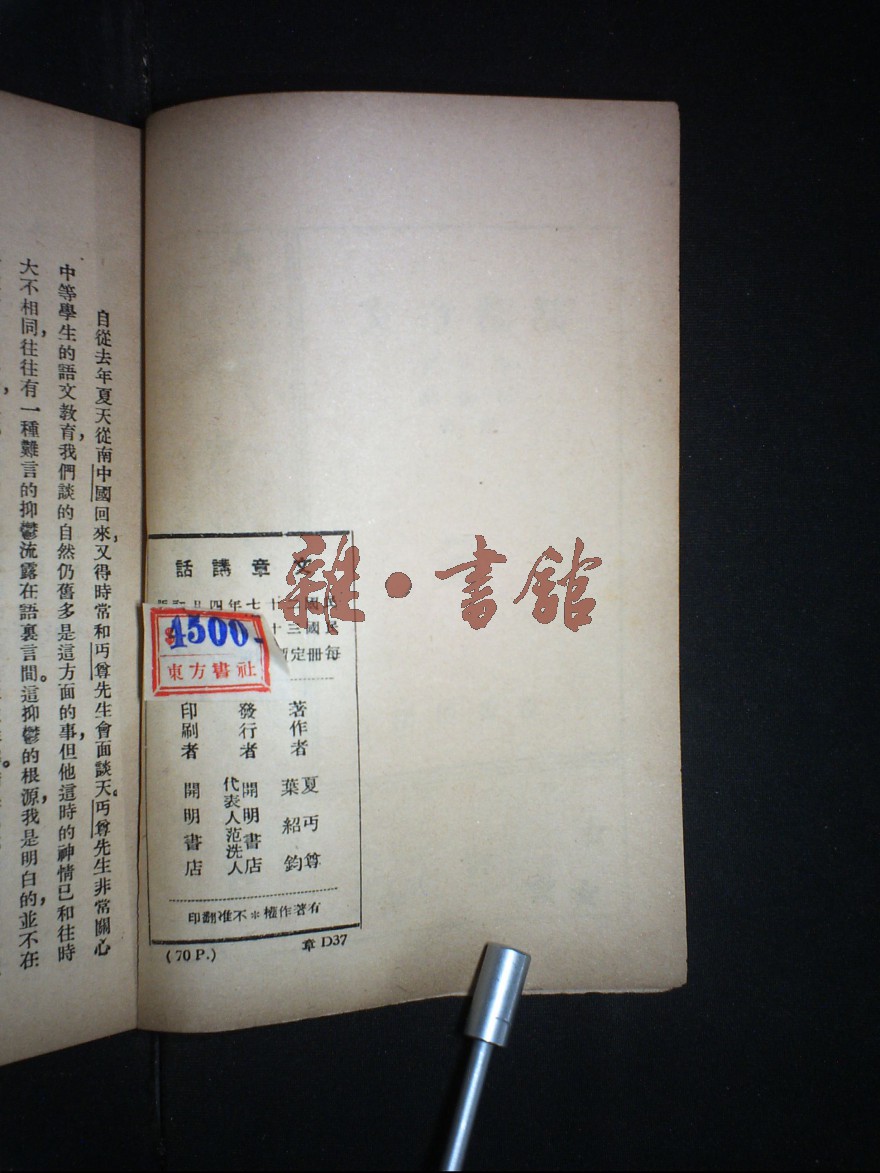 文章講話
每冊定
$4500
東方書社
著作者
夏丏尊
葉紹鈞
發行者
開明書店
代表人范洗人
印刷者
開明書店
有著作權＊不准翻印
(70 P.)
章 D37
自從去年夏天從南中國回來，又得時常和丏尊先生會面談天。丏尊先生非常關心
中等學生的語文教育，我們談的自然仍舊多是這方面的事，但他這時的神情已和往時
大不相同，往往有一種難言的抑鬱流露在語裏言間。這抑鬱的根源，我是明白的，並不在
雜·書館